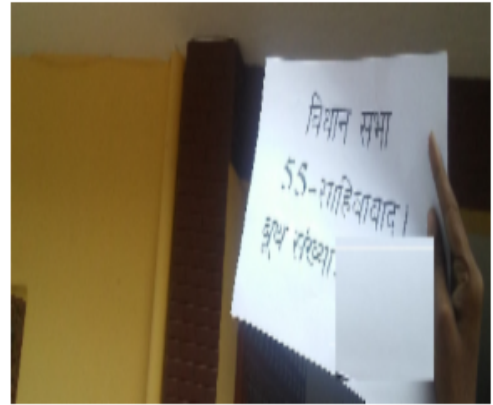 विधान सभा
55-साहिबाबाद।
बूथ संख्या.